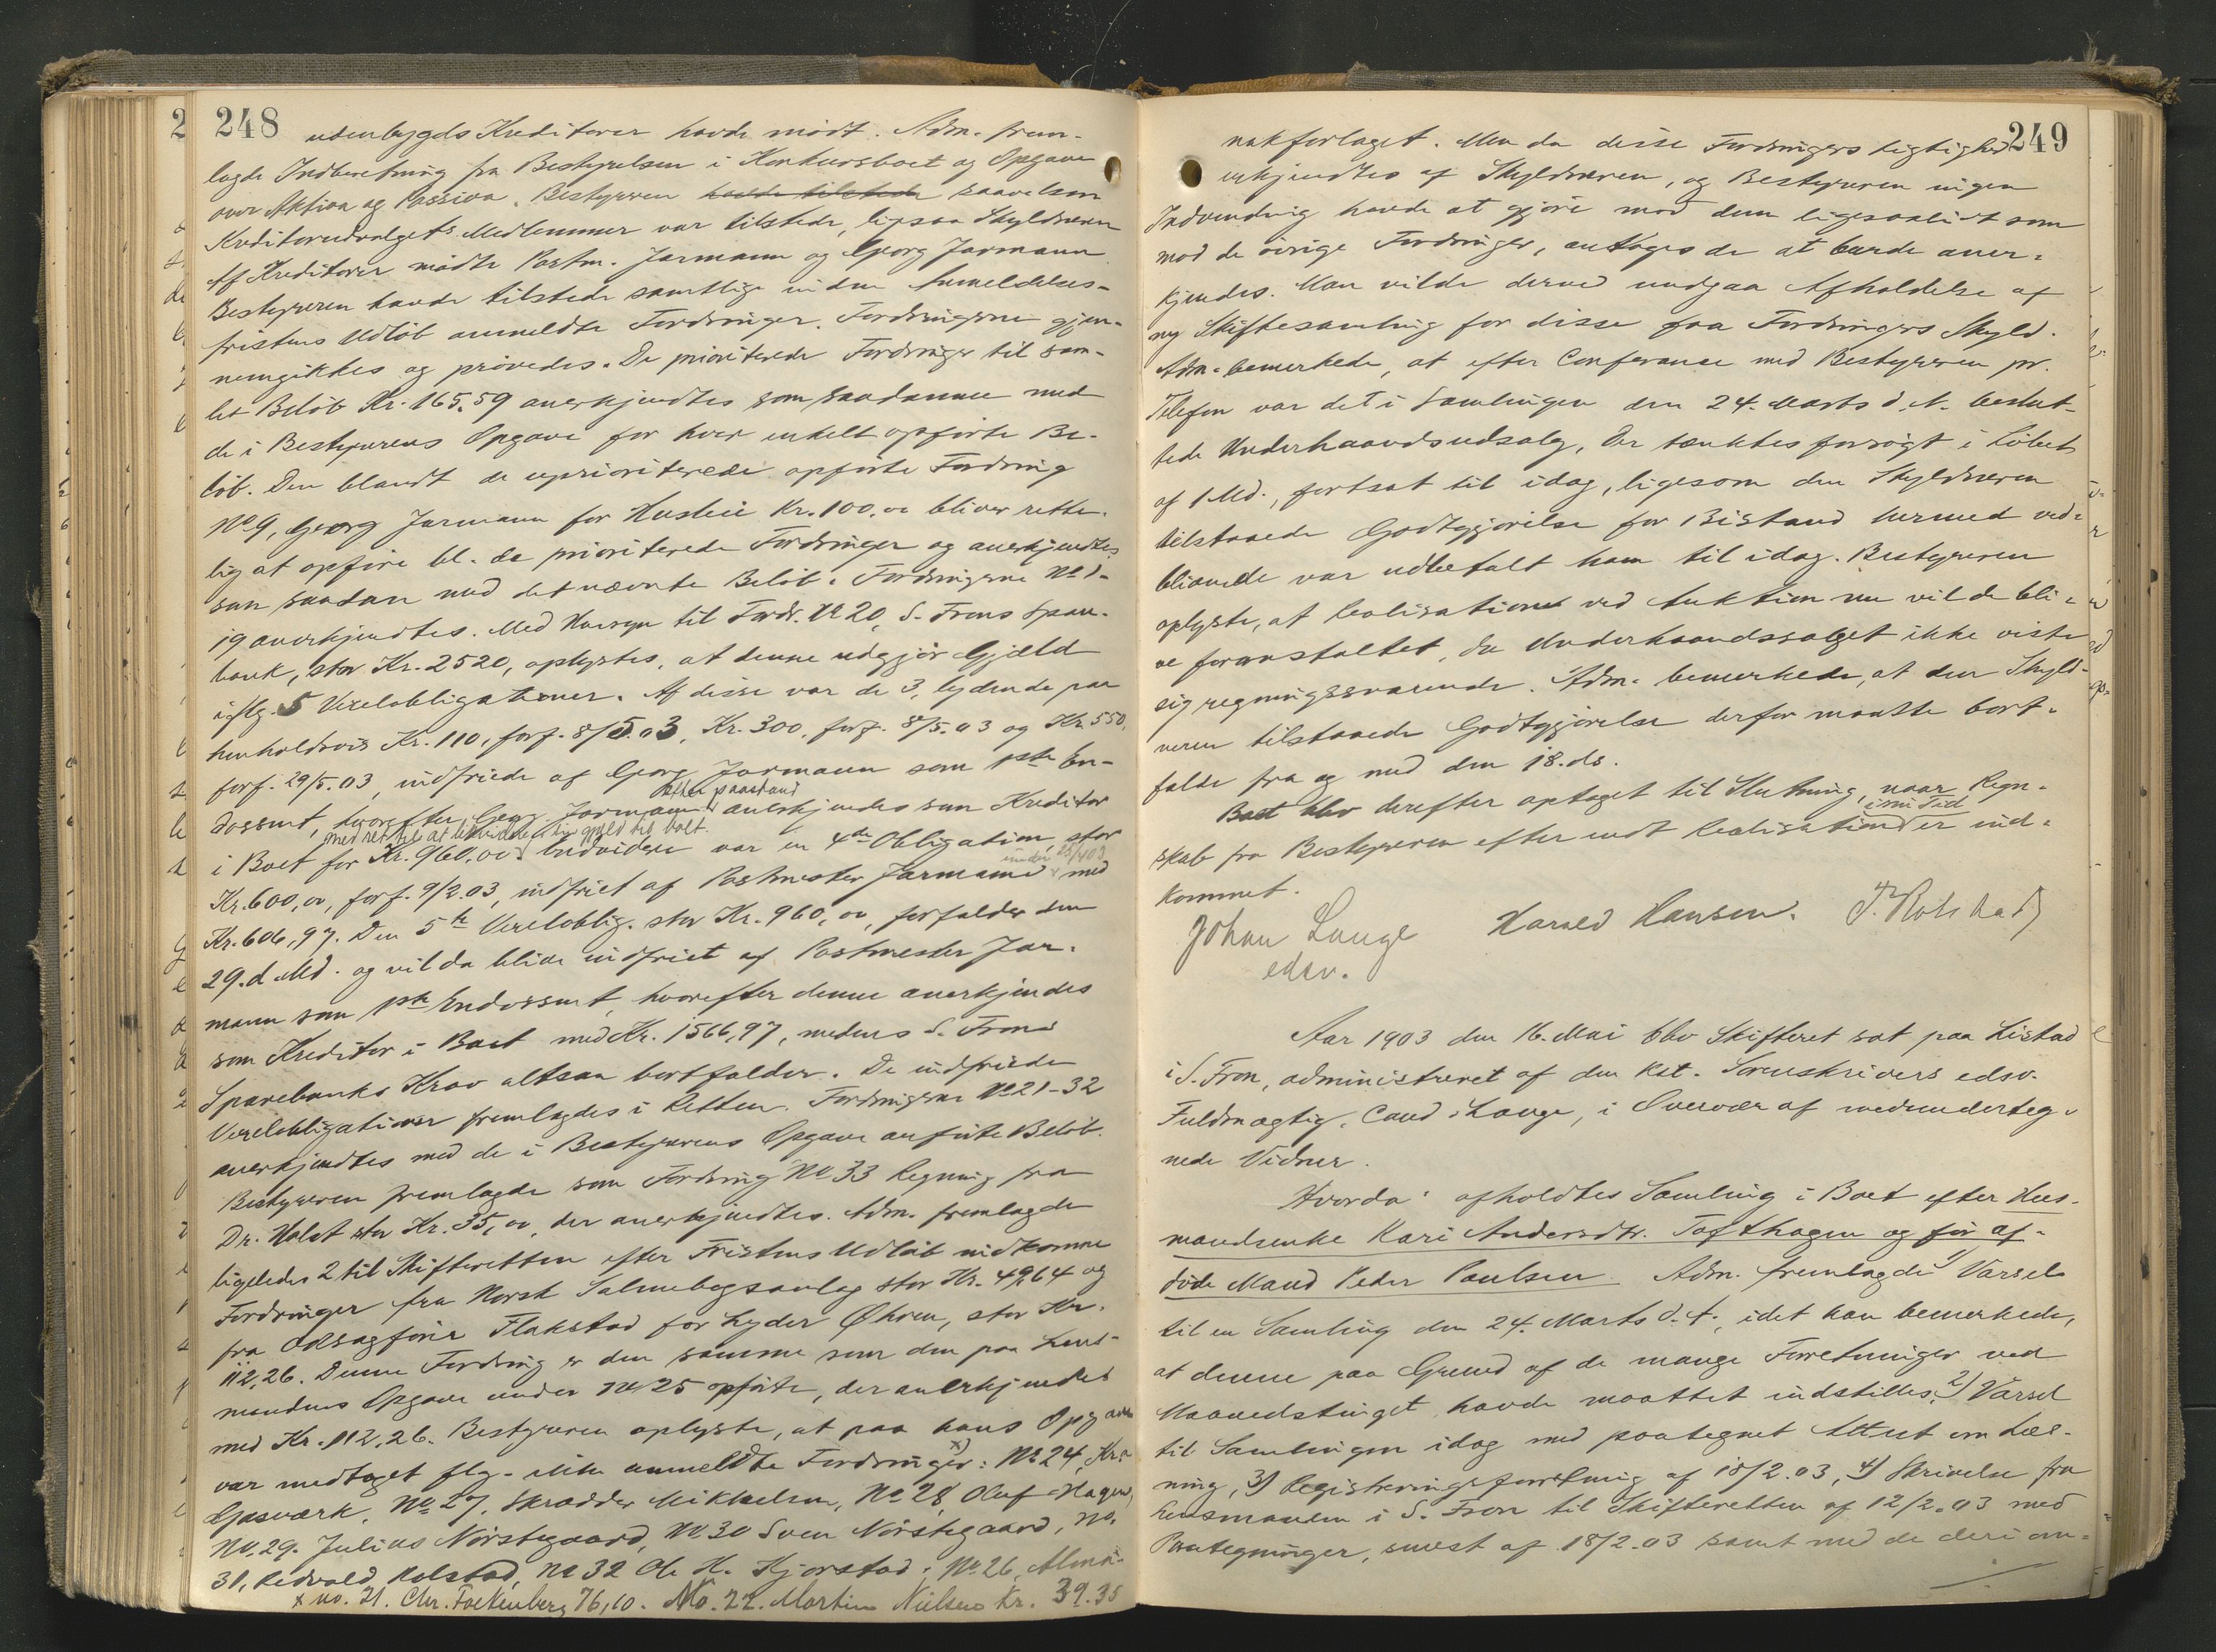 248
udenbygds Kreditorer havde mødt. Adm. frem-
lagde Indberetning fra Bestyrelsen i Konkursboet og Opgave
over Aktiva og Passiva. Bestyreren havde tilstede saavelsom
Kreditorudvalgets Medlemmer var tilstede, ligesaa Skyldneren
Af Kreditorer mødte Postm. Jarmann og Georg Jarmann.
Bestyreren havde tilstede samtlige inden Anmeldelses-
fristens Udløb anmeldte Fordringer. Fordringerne gjen-
nemgikkes og prøvedes. De prioriterede Fordringer til sam-
let Beløb Kr. 165,59 anerkjendtes som saadanne med
de i Bestyrerens Opgave for hver enkelt opførte Be-
løb. Den blandt de uprioriterede opførte Fordring
No 9, Georg Jarmann for Husleie Kr. 100,00 bliver rette-
lig at opføre bl. de prioriterede Fordringer og anerkjendtes
som saadan med det nævnte Beløb. Fordringerne No 1-
19 anerkjendtes. Med Hensyn til Fordr. No 20, S. Frons Spare-
bank, stor Kr. 2520, oplystes, at denne udgjør Gjæld
iflg. 5 Vexelobligationer. Af disse var de 3, lydende paa
henholdsvis Kr. 110, forf. 8/5.03, Kr. 300, forf. 8/5.03 og Kr. 550,
forf. 29/5.03, indfriede af Georg Jarmann som 1ste En-
dossent, hvorefter Georg Jarmann efter paastand anerkjendes som Kreditor
i Boet for Kr. 960,00 med ret til at likvidere sin gjæld til boet. Endvidere var en 4de Obligation stor
Kr. 600,00, forf. 9/2.03, indfriet af Postmester Jarmann med
Kr. 606,97. Den 5te Vexeloblig. stor Kr. 960,00, forfalder den
29. d. Md. og vil da blive indfriet af Postmester Jar-
mann som 1ste Endossent, hvorefter denne anerkjendes
som Kreditor i Boet med Kr. 1566,97, medens S. Frons
Sparebanks Krav altsaa bortfalder. De indfriede
Vexelobligationer fremlagdes i Retten. Fordringerne No 21-32
anerkjendtes med de i Bestyrerens Opgave anførte Beløb.
Bestyreren fremlagde som Fordring No 33 Regning fra
Dr. Holst stor Kr. 35,00, der anerkjendtes. Adm. fremlagde
ligeledes 2 til Skifteretten efter Fristens Udløb indkomne
Fordringer fra Norsk Salmebogsanlag stor Kr. 49,64 og
fra Odsagfører Flakstad for Lyder Øhren, stor Kr.
112,26. Denne Fordring er den samme som den paa Lens-
mandens Opgave under No 25 opførte, der anerkjendes
med Kr. 112,26. Bestyreren oplyste, at paa hans Opgave
var medtaget flg. ikke anmeldte Fordringer x): No 24, Kra
Gasværk, No 27, Skrædder Mikkelsen, No 28, Oluf Hagen,
No. 29. Julius Nørstegaard, No 30 Sven Nørstegaard, no.
31, Redvald Kolstad, No 32 Ole H. Kjorstad; No. 26, Alma-
x no. 21. Chr. Falkenberg 76,10. No. 22. Martin Nielsen Kr. 39.35
249
nakforlaget. Men da disse Fordringers rigtighed
erkjendtes af Skyldneren, og Bestyreren ingen
Indvending havde at gjøre mod dem ligesaalidt som
mod de øvrige Fordringer, antages de at burde aner-
kjendes. Man vilde derved undgaa Afholdelse af
ny Skiftesamling for disse faa Fordringers Skyld.
Adm. bemerkede, at efter Conferance med Bestyreren pr.
Telefon var det i Samlingen den 24. Marts d. A. beslut-
tede Underhaandsudsalg, der tænktes forsøgt i Løbet
af 1 Md., fortsat til idag, ligesom den Skyldneren
tilstaaede Godtgjørelse for Bistand hermed ved-
blivende var udbetalt ham til idag. Bestyreren
oplyste, at Realisationen ved Auktion nu vilde bli-
ve foranstaltet, da Underhaandssalget ikke viste
sig regningssvarende. Adm. bemerkede, at den Skyld-
neren tilstaaede Godtgjørelse derfor maatte bort-
falde fra og med den 18. ds.
Boet blev derefter optaget til Slutning, naar Regn-
skab fra Bestyreren efter endt Realisation i sin Tid er ind-
kommet.
Johan Lange Harald Hansen. P. Kolstad
edsv.
Aar 1903 den 16. Mai blev Skifteret sat paa Listad
i S. Fron, administreret af den Kst. Sorenskrivers edsv.
Fuldmægtig, Cand. Lange, i Overvær af medunderteg-
nede Vidner.
Hvorda: afholdtes Samling i Boet efter Hus-
mandsenke Kari Andersdtr. Tofthagen og før af-
døde Mand Peder Paulsen. Adm. fremlagde 1) Varsel
til en Samling den 24. Marts d. A., idet han bemerkede,
at denne paa Grund af de mange Forretninger ved
Maanedstinget havde maattet indstilles, 2) Varsel
til Samlingen idag med paategnet Attest om Læs-
ning, 3) Registreringsforretning af 18/2.03, 4) Skrivelse fra
Lensmanden i S. Fron til Skifteretten af 12/2.03 med
Paategninger, senest af 18/2.03 samt med de deri an-